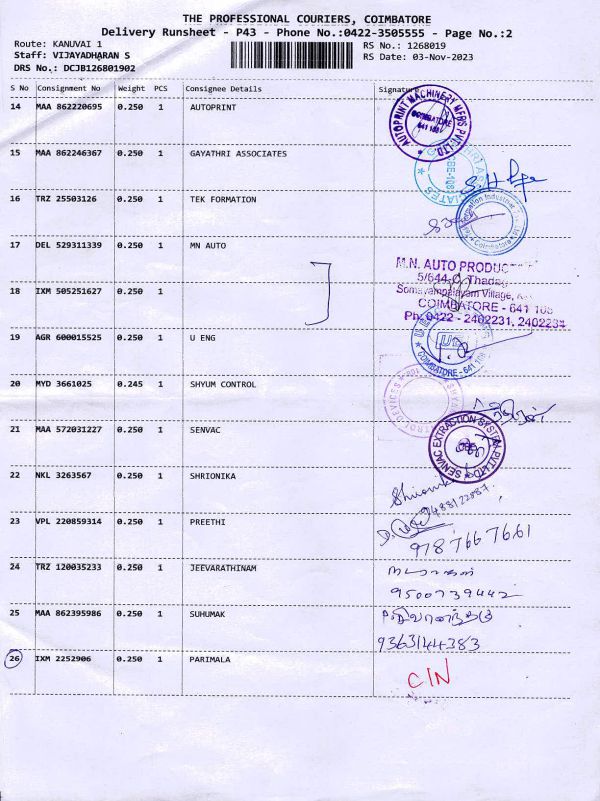 THE PROFESSIONAL COURIERS, COIMBATORE
Delivery Runsheet - P43 - Phone No.:0422-3505555 - Page No.:2
Route: KANUVAI 1
RS No.: 1268019
Staff: VIJAYADHARAN S
RS Date: 03-Nov-2023
DRS No.: DCJB126801902
S No Consignment No Weight PCS Consignee Details Signature
14 MAA 862220695 0.250 1 AUTOPRINT
AUTOPRINT MACHINERY MFRS PVT.LTD.
COIMBATORE
641 108
15 MAA 862246367 0.250 1 GAYATHRI ASSOCIATES
16 TRZ 25503126 0.250 1 TEK FORMATION
Coimbatore
17 DEL 529311339 0.250 1 MN AUTO
M.N. AUTO PRODUC
5/644-C, Thadag
Somayampalayam Village,
COIMBATORE - 641 108
Ph: 0422 - 2402231, 2402234
18 IXM 505251627 0.250 1
19 AGR 600015525 0.250 1 U ENG
COIMBATORE - 641 108
20 MYD 3661025 0.245 1 SHYUM CONTROL
21 MAA 572031227 0.250 1 SENVAC
SENVAC EXTRACTION SYSTEM PVT.LTD
22 NKL 3263567 0.250 1 SHRIONIKA
Shrionika
23 VPL 220859314 0.250 1 PREETHI
978 766 7661
24 TRZ 120035233 0.250 1 JEEVARATHINAM
9500739442
25 MAA 862395986 0.250 1 SUHUMAK
9363144383
26 IXM 2252906 0.250 1 PARIMALA
C/N